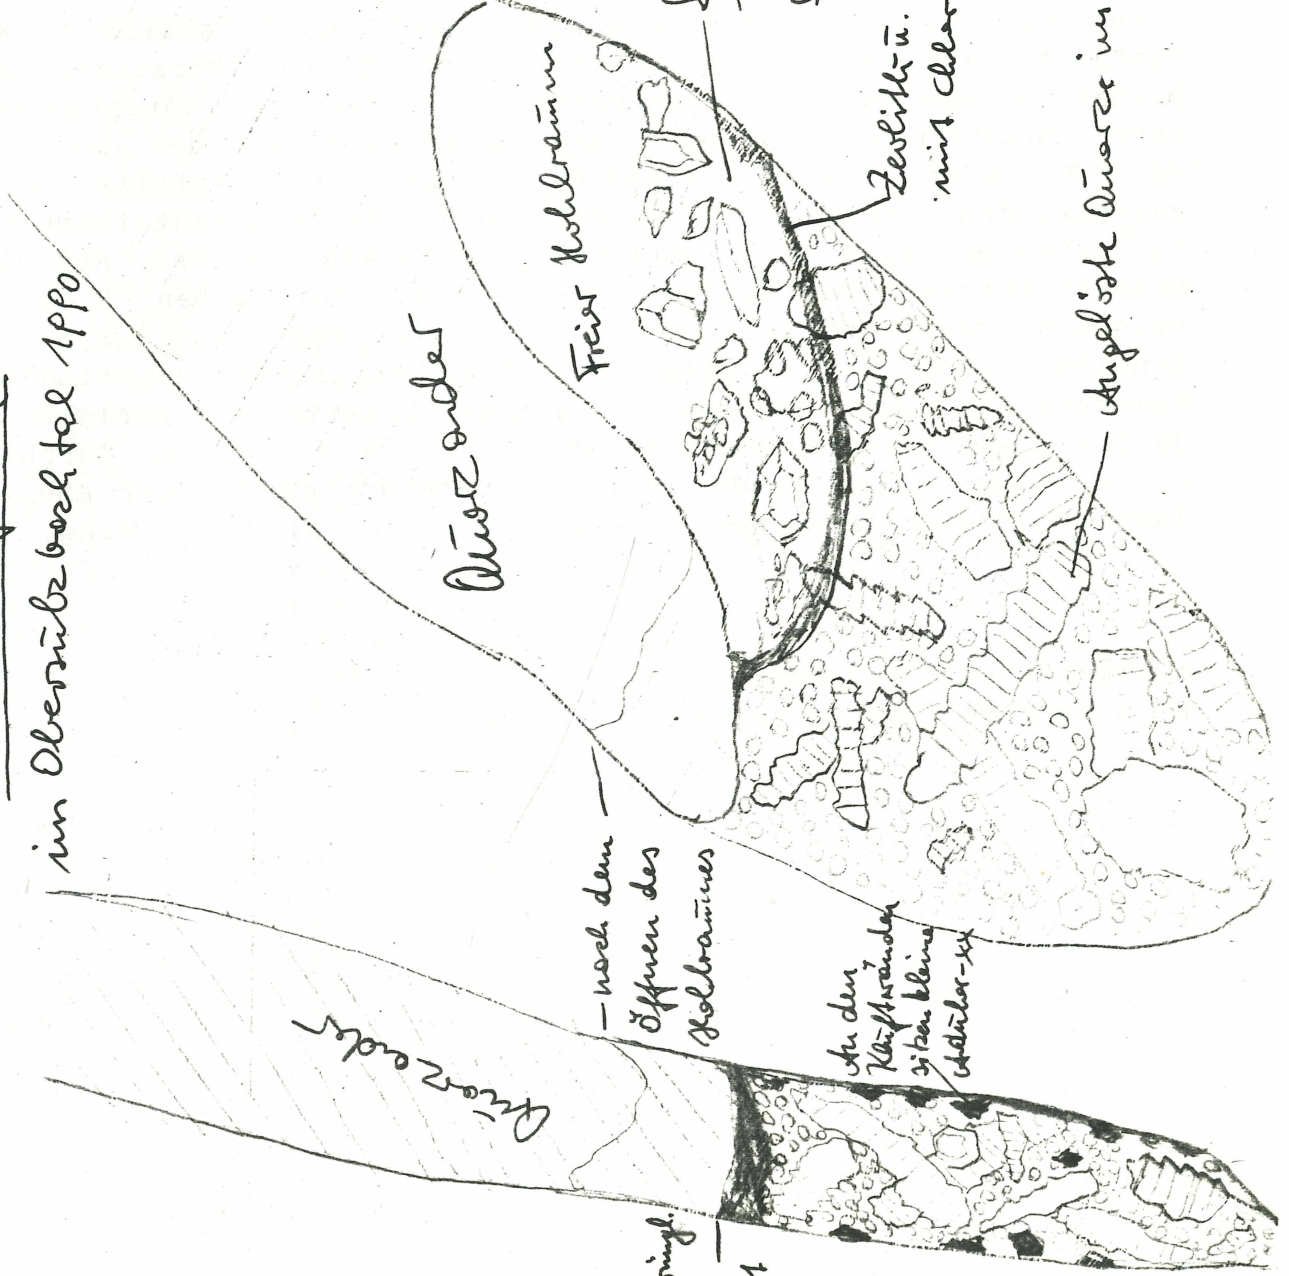 im Obersulzbachtal 1990
Quarzader
Freier Hohlraum
Zeolith u.
mit Chlor
Angelöste Quarze im
nach dem
Öffnen des
Hohlraumes
An den
Kluftwänden
sitzen kleine
Adular-xx
Quarzader